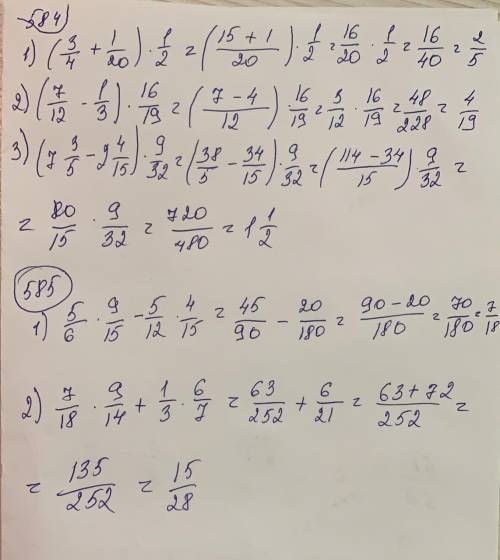 584)
1) (3/4 + 1/20) · 1/2 = (15 + 1/20) · 1/2 = 16/20 · 1/2 = 16/40 = 2/5
2) (7/12 - 1/3) · 16/19 = (7 - 4/12) 16/19 = 3/12 · 16/19 = 48/228 = 4/19
3) (7 3/5 - 2 4/15) · 9/32 = (38/5 - 34/15) · 9/32 = (114 - 34/15) · 9/32 =
= 80/15 · 9/32 = 720/480 = 1 1/2
585
1) 5/6 · 9/15 - 5/12 · 4/15 = 45/90 - 20/180 = 90 - 20/180 = 70/180 = 7/18
2) 7/18 · 9/14 + 1/3 · 6/7 = 63/252 + 6/21 = 63 + 72/252 =
= 135/252 = 15/28